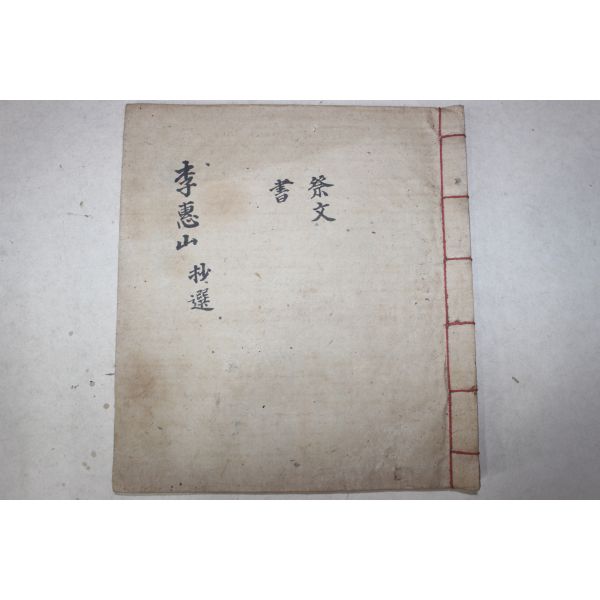 祭文
書
李惠山 抄選